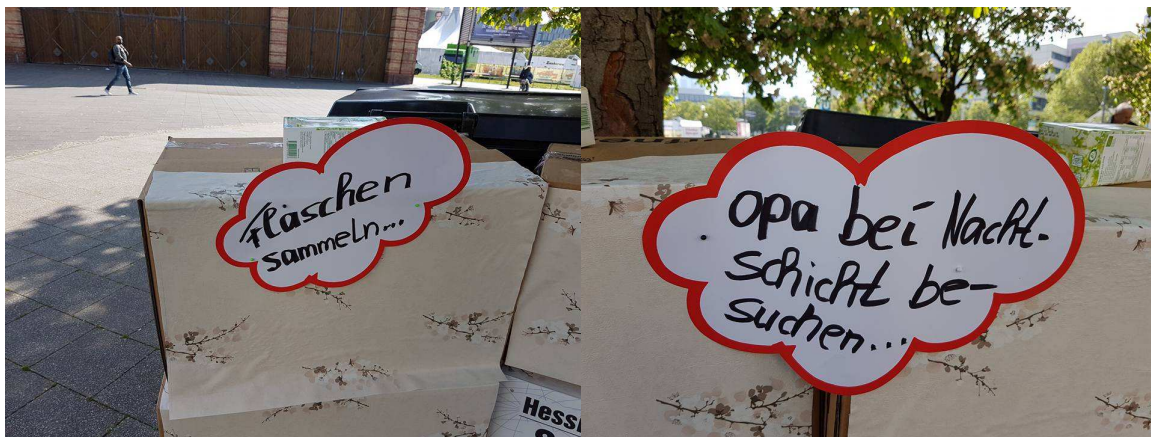 Flaschen
sammeln...
Opa bei Nacht-
schicht be-
suchen...
Hess